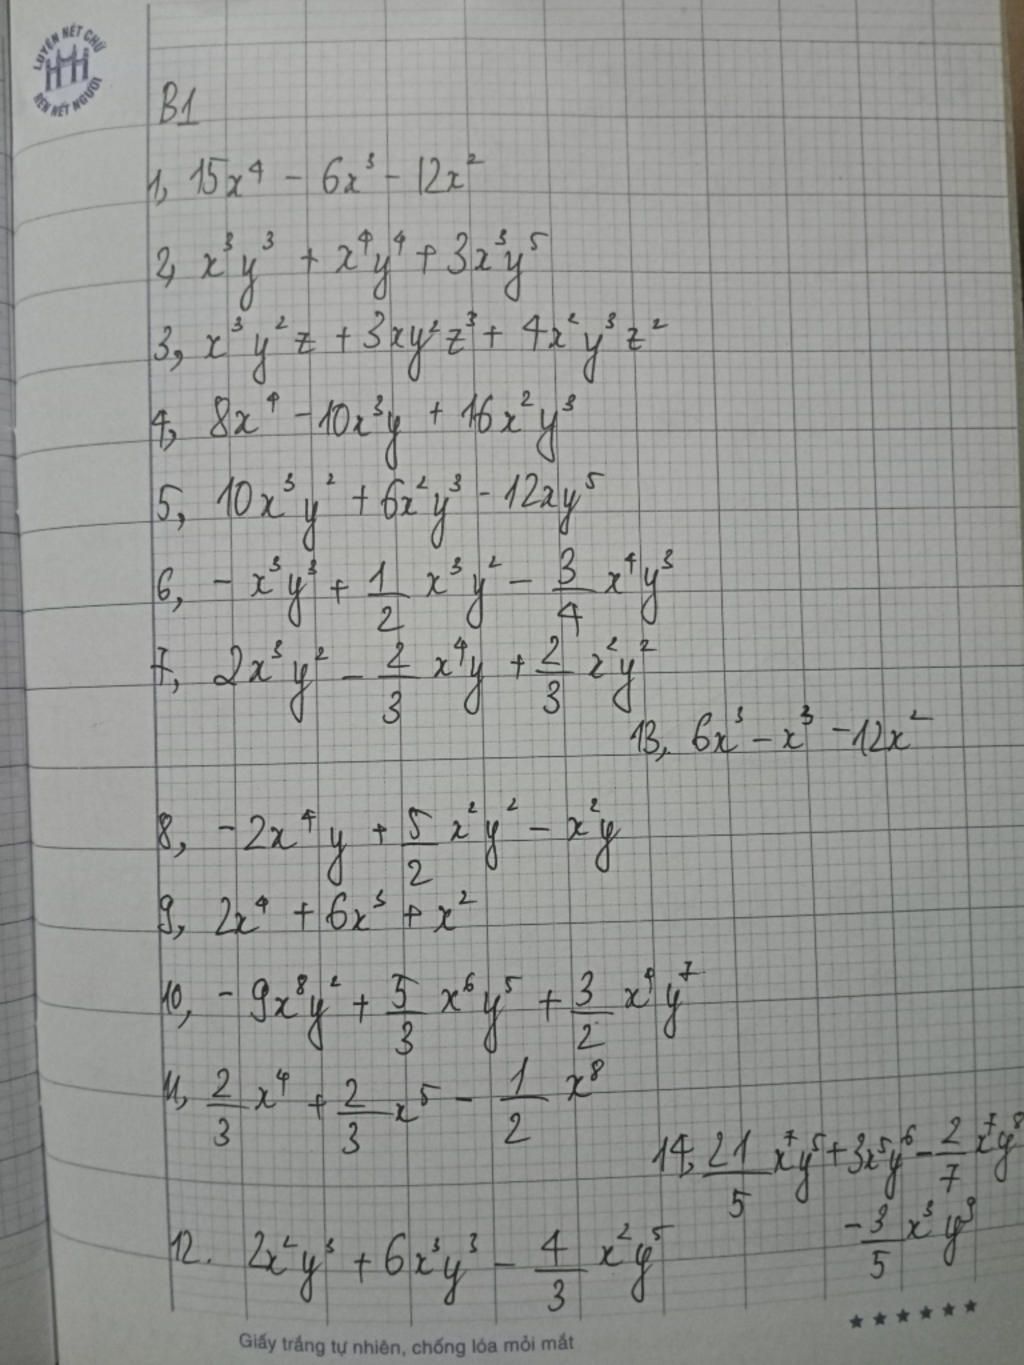 LUYỆN NÉT CHỮ
RÈN NẾT NGƯỜI
B1
1, 15x⁴ - 6x³ - 12x²
2, x³y³ + x⁴y⁴ + 3x³y⁵
3, x³y²z + 3xy²z³ + 4x²y³z²
4, 8x⁴ - 10x³y + 16x²y³
5, 10x³y² + 6x²y³ - 12xy⁵
6, - x³y³ + 1/2 x³y² - 3/4 x⁴y³
7, 2x³y² - 2/3 x⁴y + 2/3 x²y²
13, 6x³ - x³ - 12x²
8, - 2x⁴y + 5/2 x²y² - x²y
9, 2x⁴ + 6x³ + x²
10, - 9x⁸y² + 5/3 x⁶y⁵ + 3/2 x⁴y⁷
11, 2/3 x⁴ + 2/3 x⁵ - 1/2 x⁸
14, 21/5 x⁷y⁵ + 3x⁵y⁶ - 2/7 x⁷y⁸
- 3/5 x³y⁹
12. 2x²y³ + 6x³y³ - 4/3 x²y⁵
Giấy trắng tự nhiên, chống lóa mỏi mắt